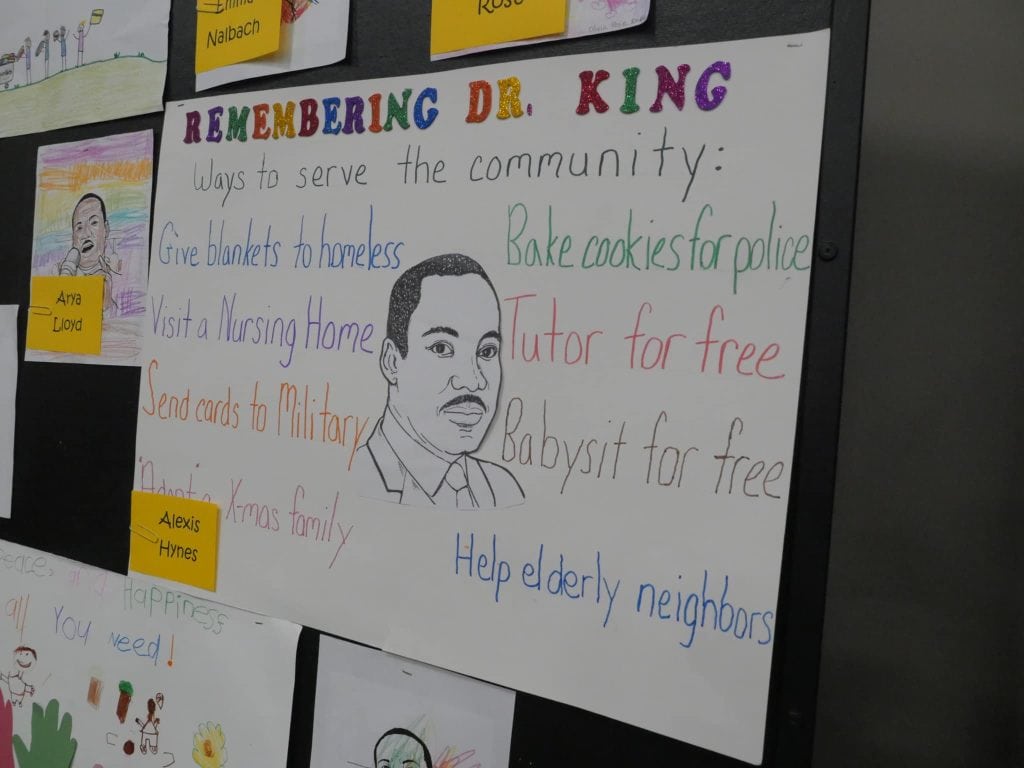 Nalbach
Rose
REMEMBERING DR. KING
Ways to serve the community:
Give blankets to homeless
Bake cookies for police
Visit a Nursing Home
Tutor for free
Send cards to Military
Babysit for free
Adopt a X-mas family
Help elderly neighbors
Arya
Lloyd
Alexis
Hynes
Peace,
Happiness
all You Need!